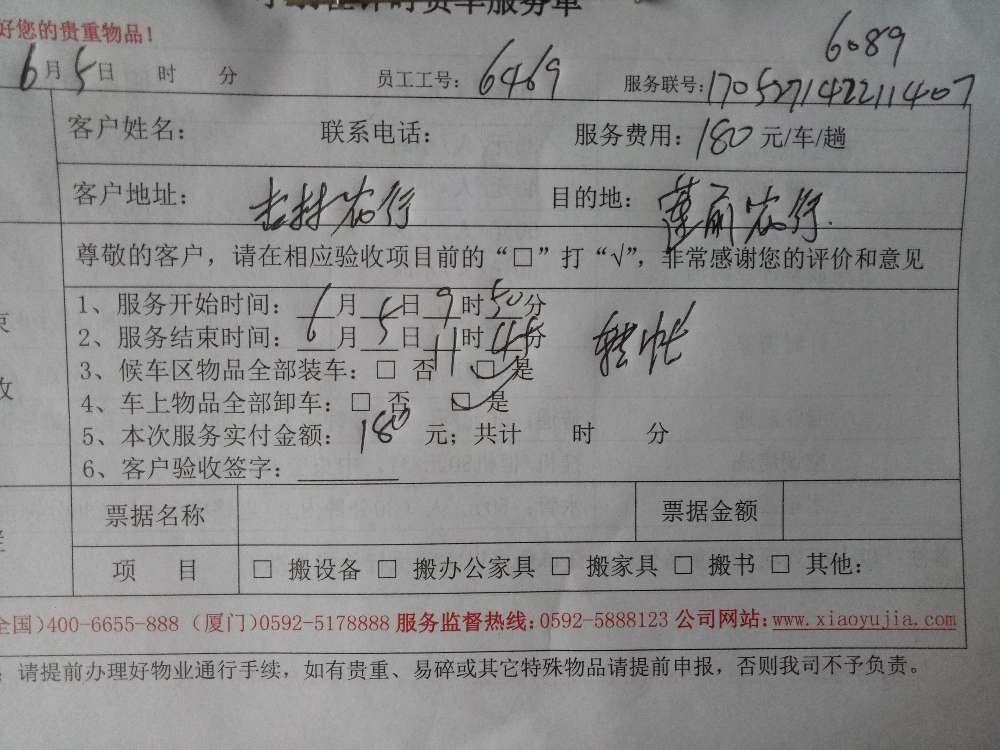 时货车服务单
好您的贵重物品！
6089
6月5日 时 分 员工工号：6469 服务联号：1705271422114407
客户姓名： 联系电话： 服务费用：180元/车/趟
客户地址： 农行 目的地：莲前农行
尊敬的客户，请在相应验收项目前的“□”打“√”，非常感谢您的评价和意见
1、服务开始时间：6月5日9时50分
2、服务结束时间：6月5日11时45分 转帐
3、候车区物品全部装车：□ 否 ☑ 是
4、车上物品全部卸车：□ 否 ☑ 是
5、本次服务实付金额：180 元；共计 时 分
6、客户验收签字：
票据名称 票据金额
项 目 □ 搬设备 □ 搬办公家具 □ 搬家具 □ 搬书 □ 其他：
全国)400-6655-888 (厦门)0592-5178888 服务监督热线：0592-5888123 公司网站：www.xiaoyujia.com
：请提前办理好物业通行手续，如有贵重、易碎或其它特殊物品请提前申报，否则我司不予负责。